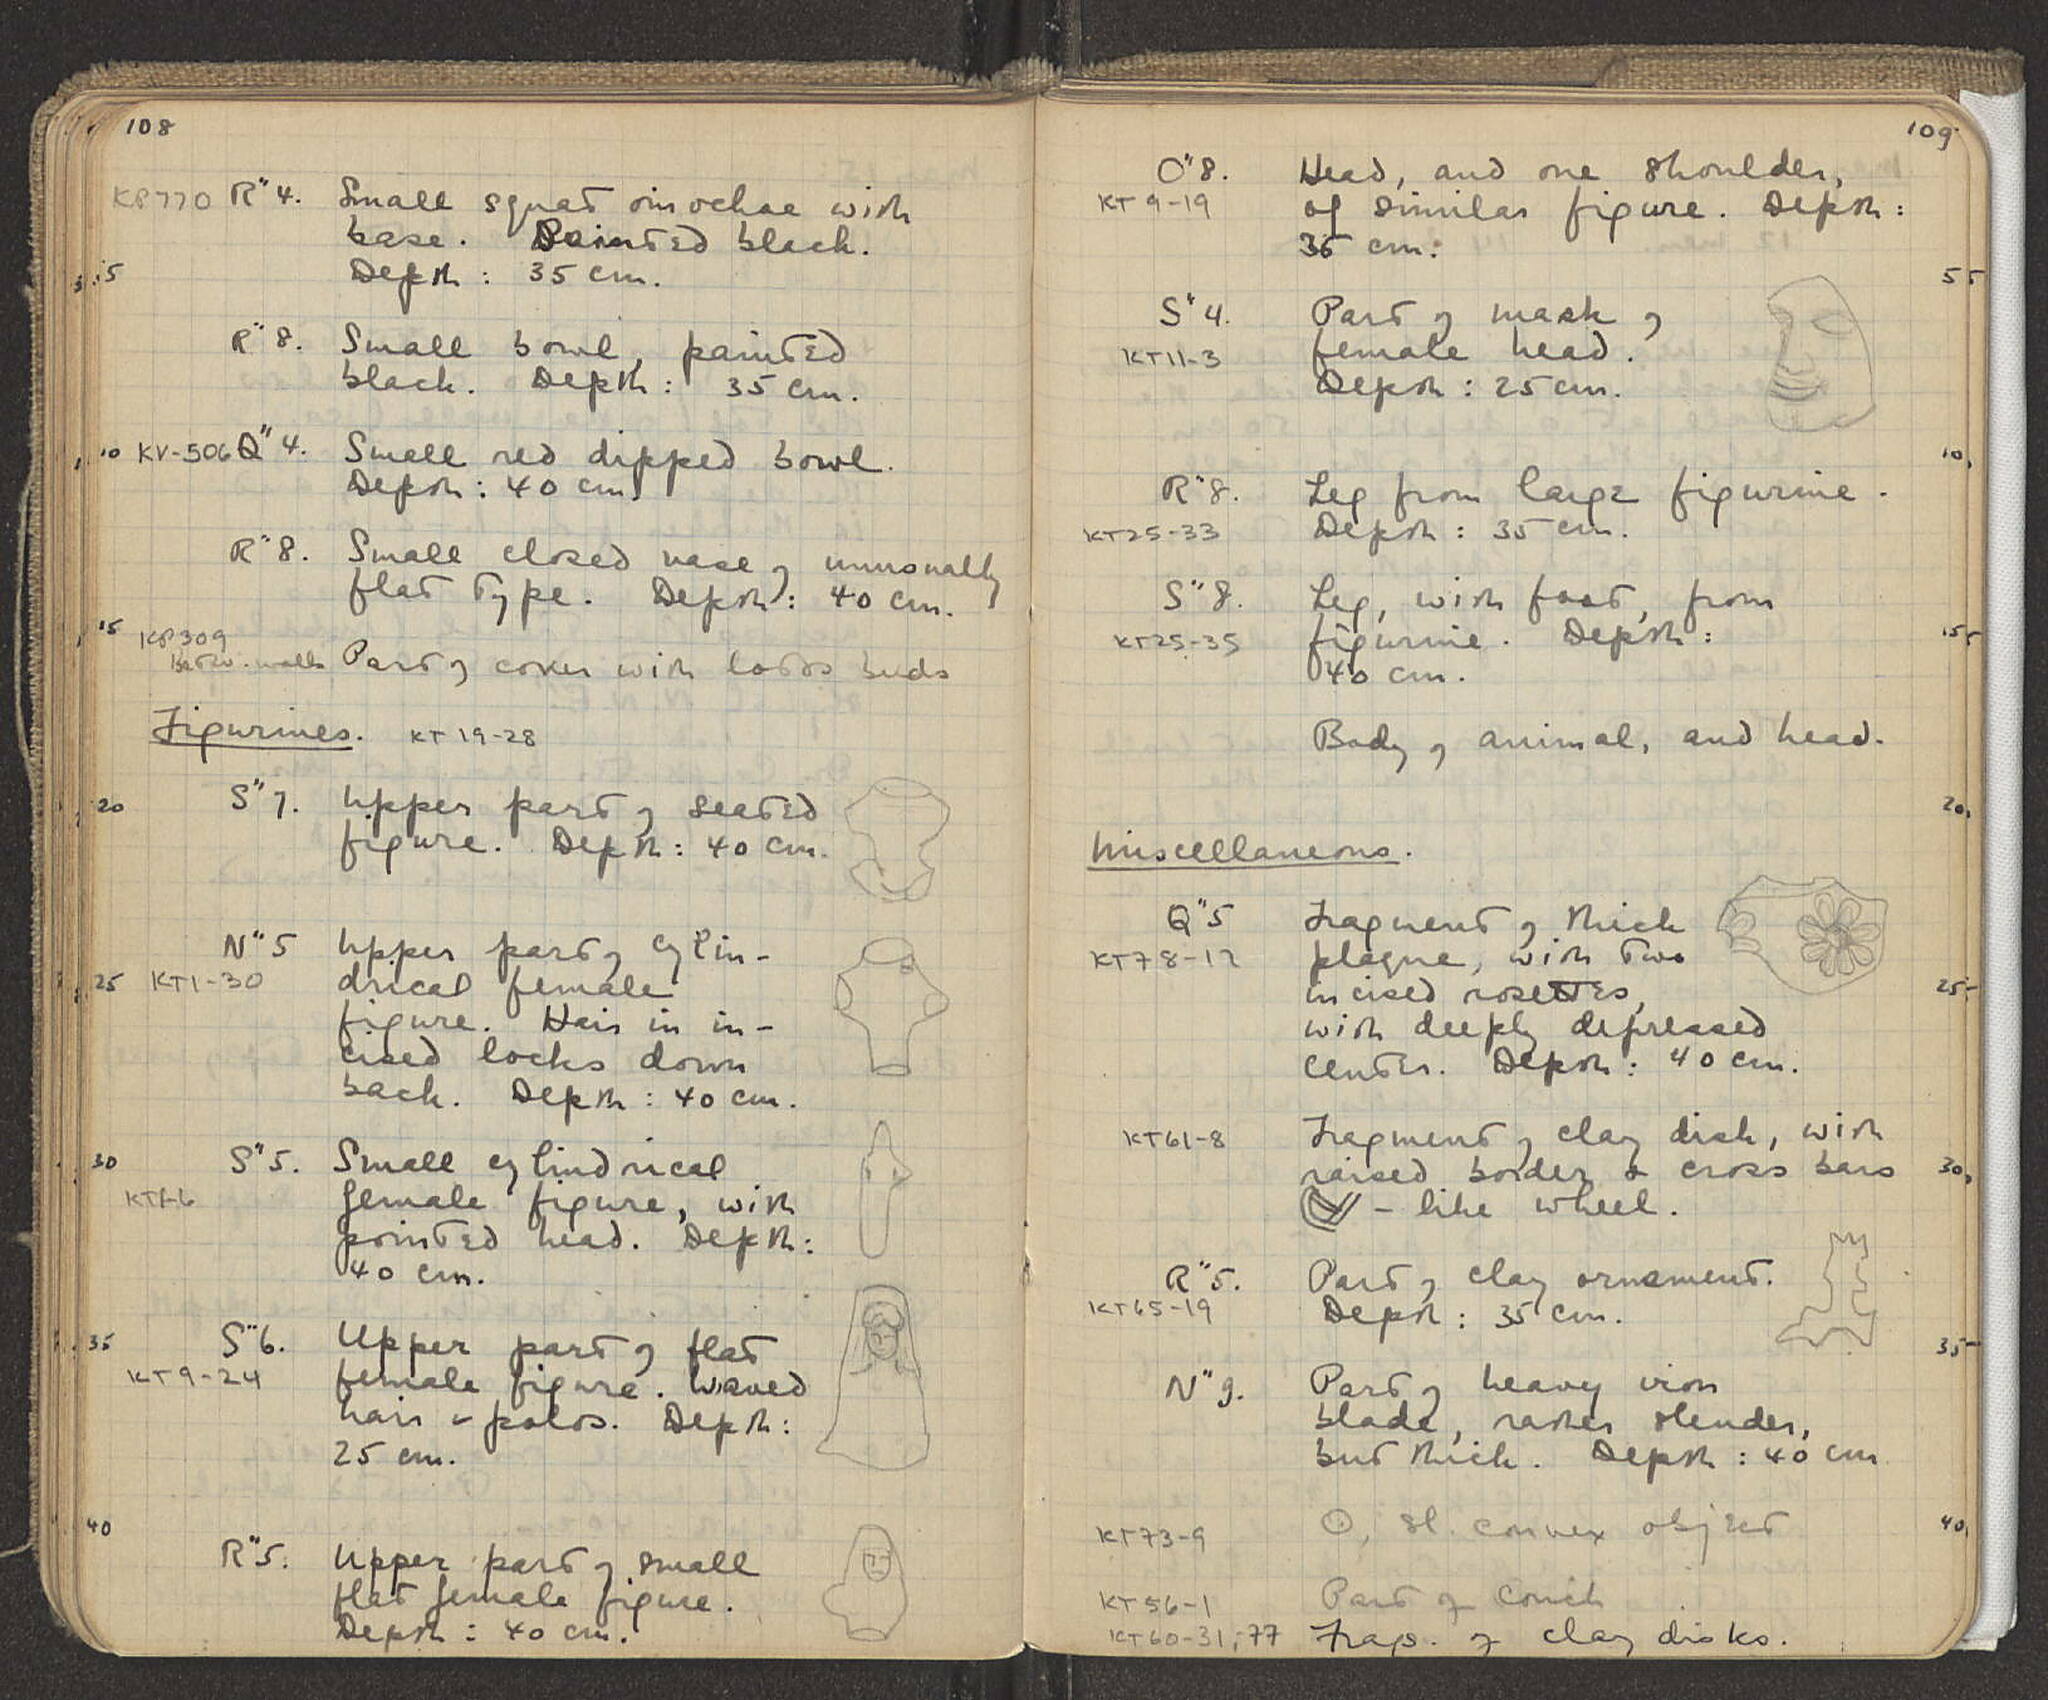 108
KP770 R"4. Small squat oinochoe with
base. Painted black.
5 Depth: 35 cm.
R"8. Small bowl, painted
black. Depth: 35 cm.
10 KV-506 Q"4. Small red dipped bowl.
Depth: 40 cm.
R"8. Small closed vase of unusually
flat type. Depth: 40 cm.
15 KP309
Betw. walls Part of cover with lotos buds
Figurines. KT 19-28
20 S"7. Upper part of seated
figure. Depth: 40 cm.
N"5 Upper part of cylin-
25 KT1-30 drical female
figure. Hair in in-
cised locks down
back. Depth: 40 cm.
30 S"5. Small cylindrical
female figure, with
pointed head. Depth:
40 cm.
35 S"6. Upper part of flat
KT9-24 female figure. Waved
hair & polos. Depth:
25 cm.
40
R"5. Upper part of small
flat female figure.
Depth: 40 cm.
109
O"8. Head, and one shoulder,
KT 9-19 of similar figure. Depth:
35 cm.
5
S"4. Part of mask of
KT11-3 female head.
Depth: 25 cm.
10
R"8. Leg from large figurine.
KT25-33 Depth: 35 cm.
S"8. Leg, with foot, from
KT25-35 figurine. Depth: 15
40 cm.
Body of animal, and head.
20
Miscellaneous.
Q"5 Fragment of thick
KT78-12 plaque, with two
incised rosettes, 25
with deeply depressed
center. Depth: 40 cm.
KT61-8 Fragment of clay disk, with
raised border & cross bars 30
- like wheel.
R"5. Part of clay ornament.
KT65-19 Depth: 35 cm.
35
N"9. Part of heavy iron
blade, rather slender,
but thick. Depth: 40 cm
KT73-9 sl. convex object 40
KT56-1 Part of couch
KT60-31,-77 Frags. of clay disks.